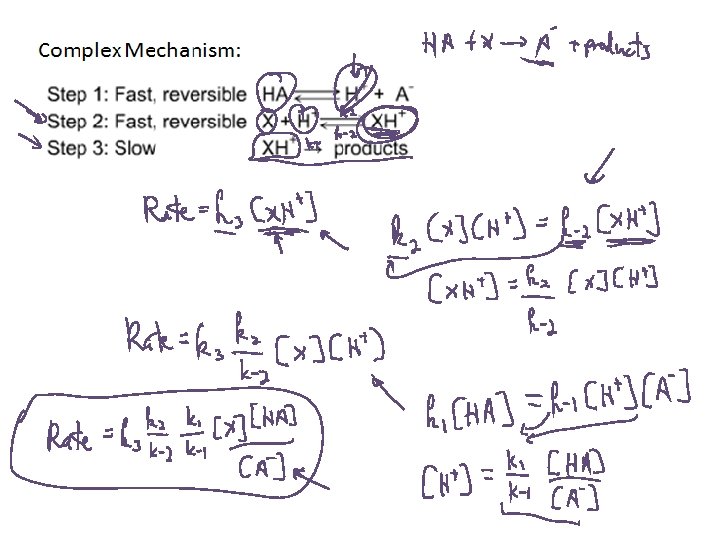 Complex Mechanism:
HA + X → A⁻ + products
Step 1: Fast, reversible HA ⇌ H⁺ + A⁻
Step 2: Fast, reversible X + H⁺ ⇌ XH⁺
k₂
k₋₂
Step 3: Slow XH⁺ → products
k₃
Rate = k₃ [XH⁺]
k₂ [X][H⁺] = k₋₂ [XH⁺]
[XH⁺] = k₂/k₋₂ [X][H⁺]
Rate = k₃ k₂/k₋₂ [X][H⁺]
k₁ [HA] = k₋₁ [H⁺][A⁻]
Rate = k₃ k₂/k₋₂ k₁/k₋₁ [X] [HA]/[A⁻]
[H⁺] = k₁/k₋₁ [HA]/[A⁻]